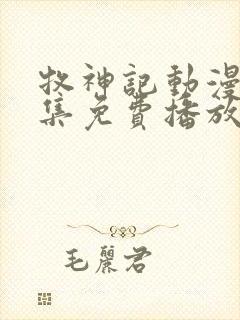 牧神記動漫
集免費播放
毛麗君